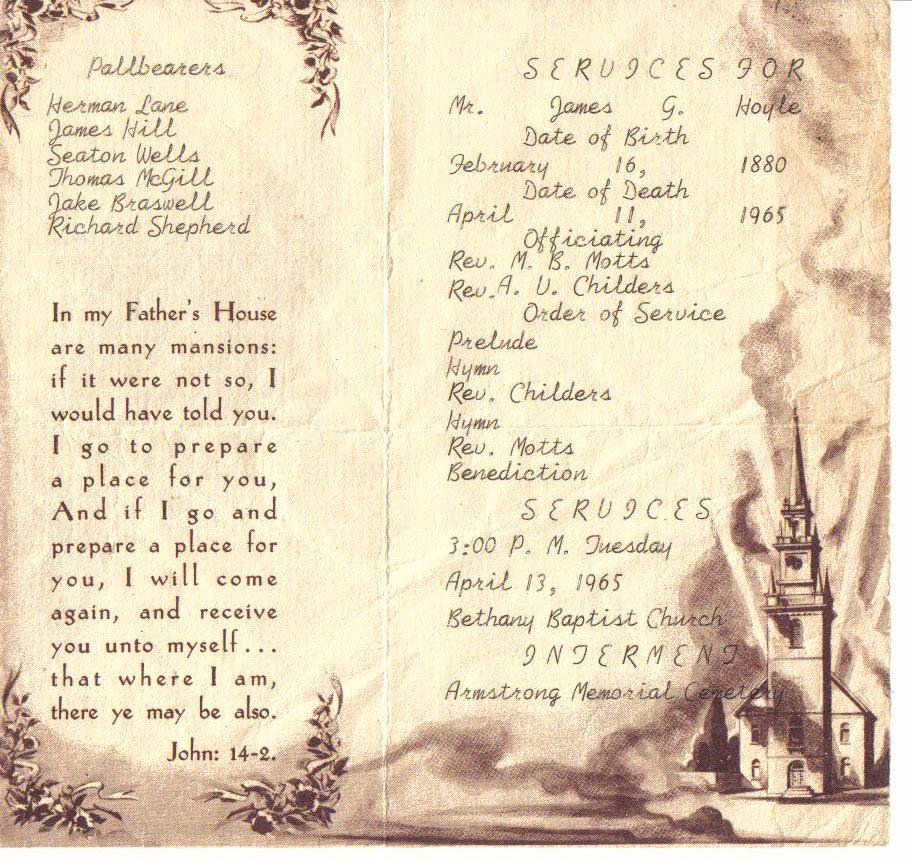 Pallbearers
Herman Lane
James Hill
Seaton Wells
Thomas McGill
Jake Braswell
Richard Shepherd
In my Father's House
are many mansions:
if it were not so, I
would have told you.
I go to prepare
a place for you,
And if I go and
prepare a place for
you, I will come
again, and receive
you unto myself...
that where I am,
there ye may be also.
John: 14-2.
SERVICES FOR
Mr. James G. Hoyle
Date of Birth
February 16, 1880
Date of Death
April 11, 1965
Officiating
Rev. M. B. Motts
Rev. A. V. Childers
Order of Service
Prelude
Hymn
Rev. Childers
Hymn
Rev. Motts
Benediction
SERVICES
3:00 P. M. Tuesday
April 13, 1965
Bethany Baptist Church
INTERMENT
Armstrong Memorial Cemetery